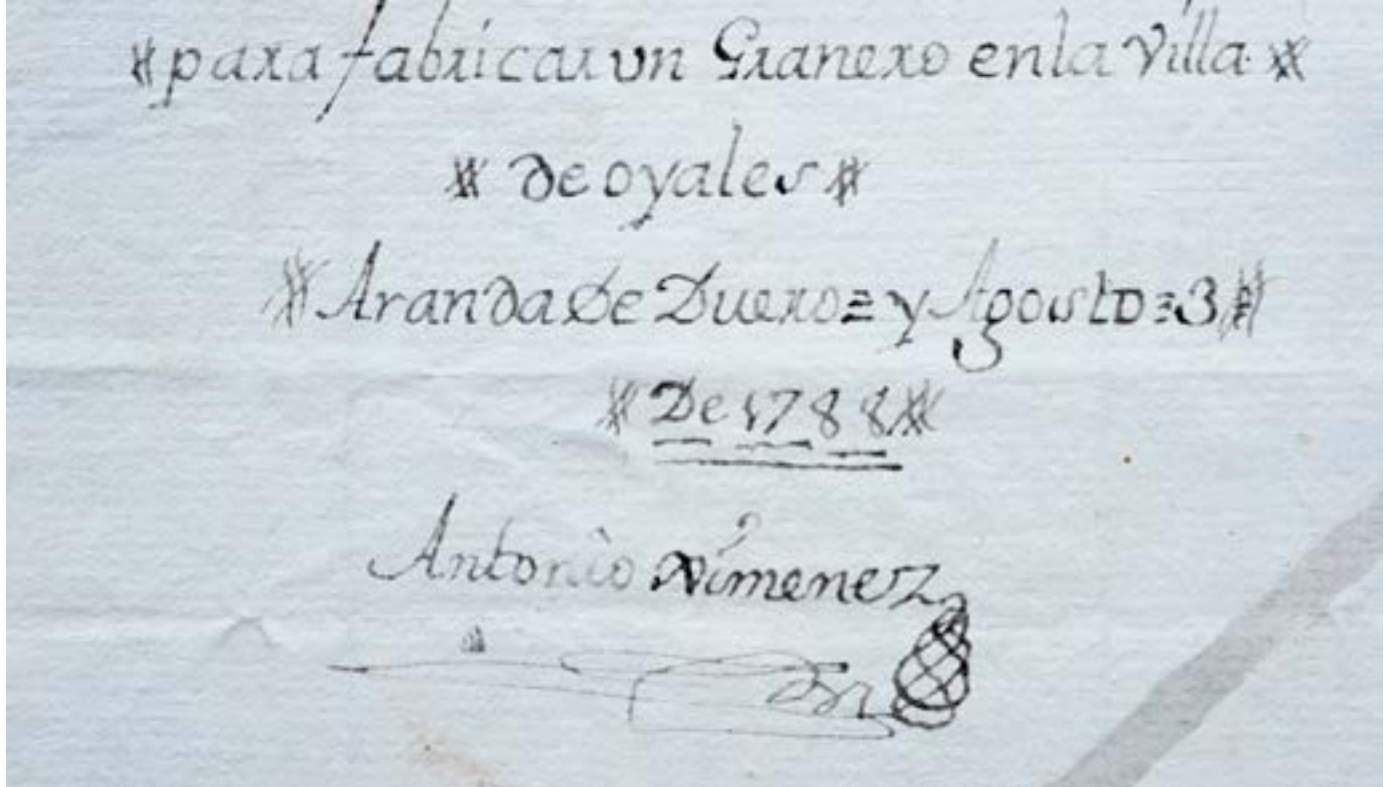 para fabricar vn Granero en la Villa
de oyales
Aranda De Duero = y Agosto = 3
De 1788
Antonio Ximenez